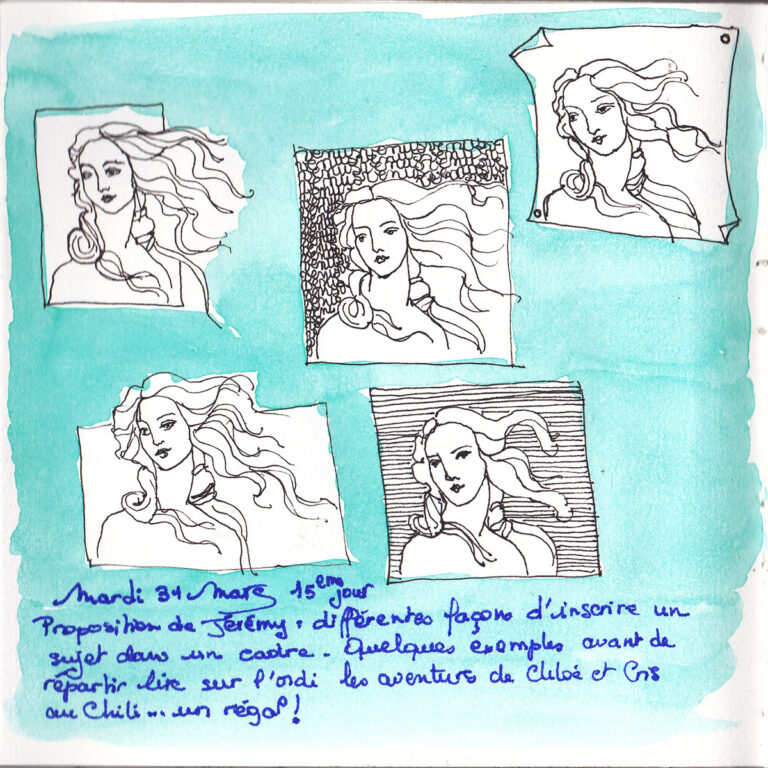 Mardi 31 Mars 15ème jour
Proposition de Jérémy : différentes façons d'inscrire un
sujet dans un cadre. Quelques exemples avant de
répartir lire sur l'ordi les aventures de Chloé et Cris
au Chili... un régal !